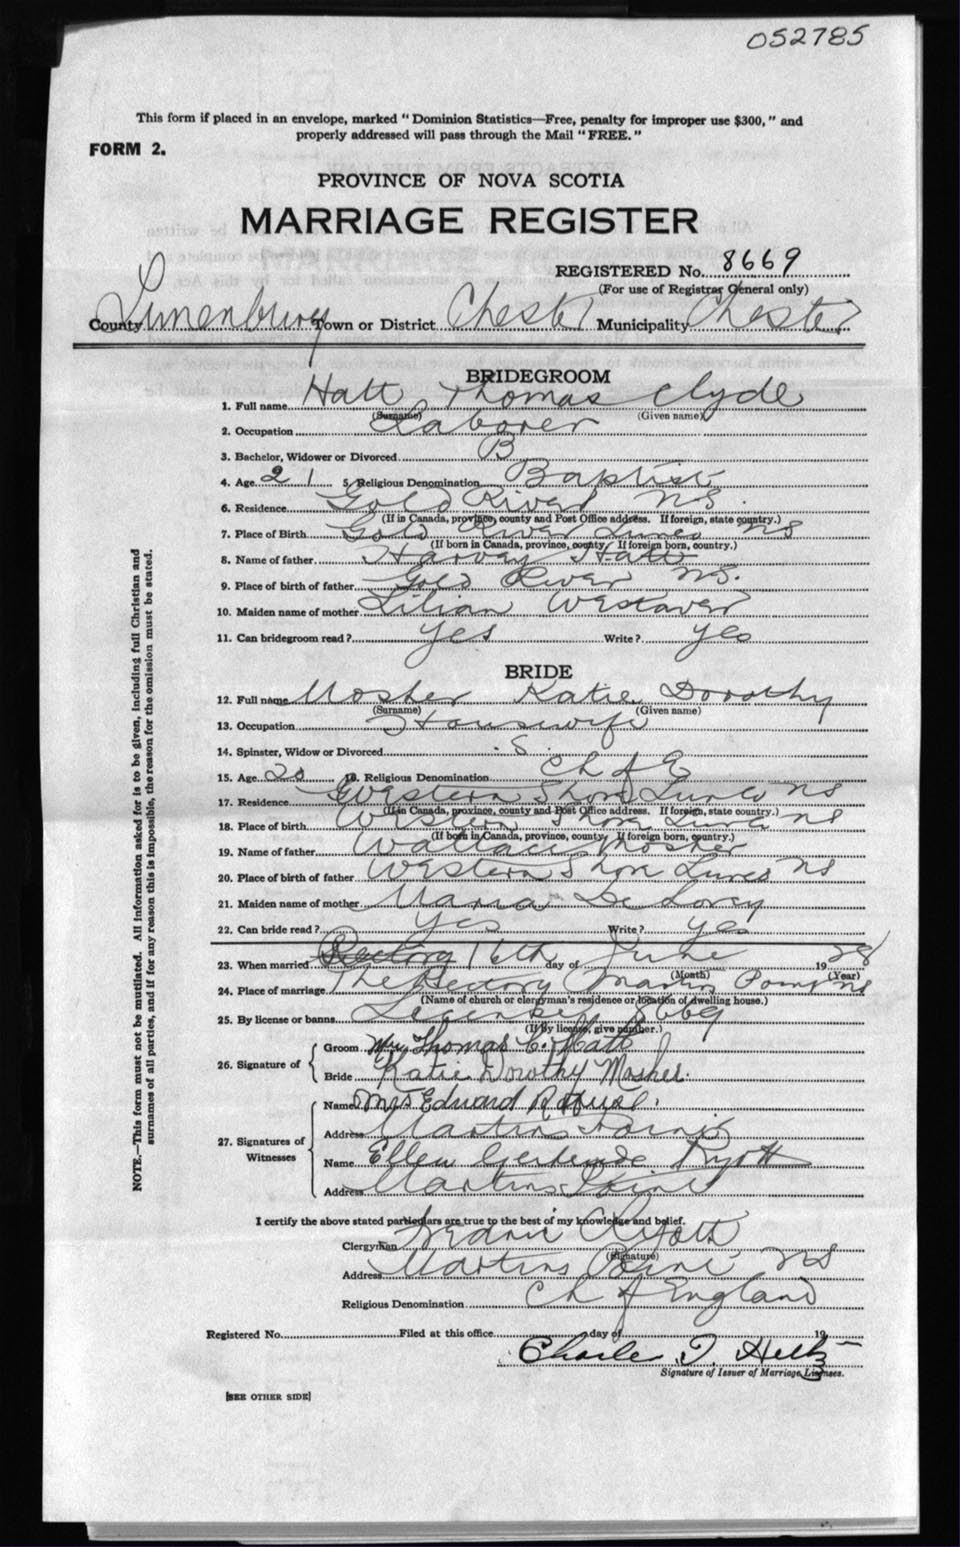 052785
This form if placed in an envelope, marked "Dominion Statistics—Free, penalty for improper use $300," and
properly addressed will pass through the Mail "FREE."
FORM 2.
PROVINCE OF NOVA SCOTIA
MARRIAGE REGISTER
REGISTERED No. 8669
(For use of Registrar General only)
County Lunenburg Town or District Chester Municipality Chester
BRIDEGROOM
1. Full name Hatt Thomas Clyde
(Surname) (Given name)
2. Occupation Laborer
3. Bachelor, Widower or Divorced B
4. Age 21 5. Religious Denomination Baptist
6. Residence Gold River NS.
(If in Canada, province, county and Post Office address. If foreign, state country.)
7. Place of Birth Gold River Lunes NS
(If born in Canada, province, county. If foreign born, country.)
8. Name of father Harvey Hatt
9. Place of birth of father Gold River NS.
10. Maiden name of mother Lilian Westaver
11. Can bridegroom read? yes Write? yes
BRIDE
12. Full name Mosher Katie Dorothy
(Surname) (Given name)
13. Occupation Housewife
14. Spinster, Widow or Divorced S.
15. Age 20 16. Religious Denomination Ch of E
17. Residence Western Shore Lunes NS
(If in Canada, province, county and Post Office address. If foreign, state country.)
18. Place of birth Western Shore Lunes NS
(If born in Canada, province, county. If foreign born, country.)
19. Name of father Wallace Mosher
20. Place of birth of father Western Shore Lunes NS
21. Maiden name of mother Maria De Lorey
22. Can bride read? Yes Write? yes
23. When married Rectory 16th day of June 1928
(Month) (Year)
24. Place of marriage The Rectory Martins Point NS
(Name of church or clergyman's residence or location of dwelling house.)
25. By license or banns License 8669
(If by license, give number.)
26. Signature of
Groom Thomas C. Hatt
Bride Katie Dorothy Mosher.
27. Signatures of Witnesses
Name Mrs Edward
Address Martins Point
Name Ellen Gertrude Ryott
Address Martins Point
I certify the above stated particulars are true to the best of my knowledge and belief.
Clergyman Ryott
(Signature)
Address Martins Point NS
Religious Denomination Ch of England
Registered No. Filed at this office day of 19
Charles T. Hiltz
Signature of Issuer of Marriage Licenses.
[SEE OTHER SIDE]
NOTE.—This form must not be mutilated. All information asked for is to be given, including full Christian and
surnames of all parties, and if for any reason this is impossible, the reason for the omission must be stated.